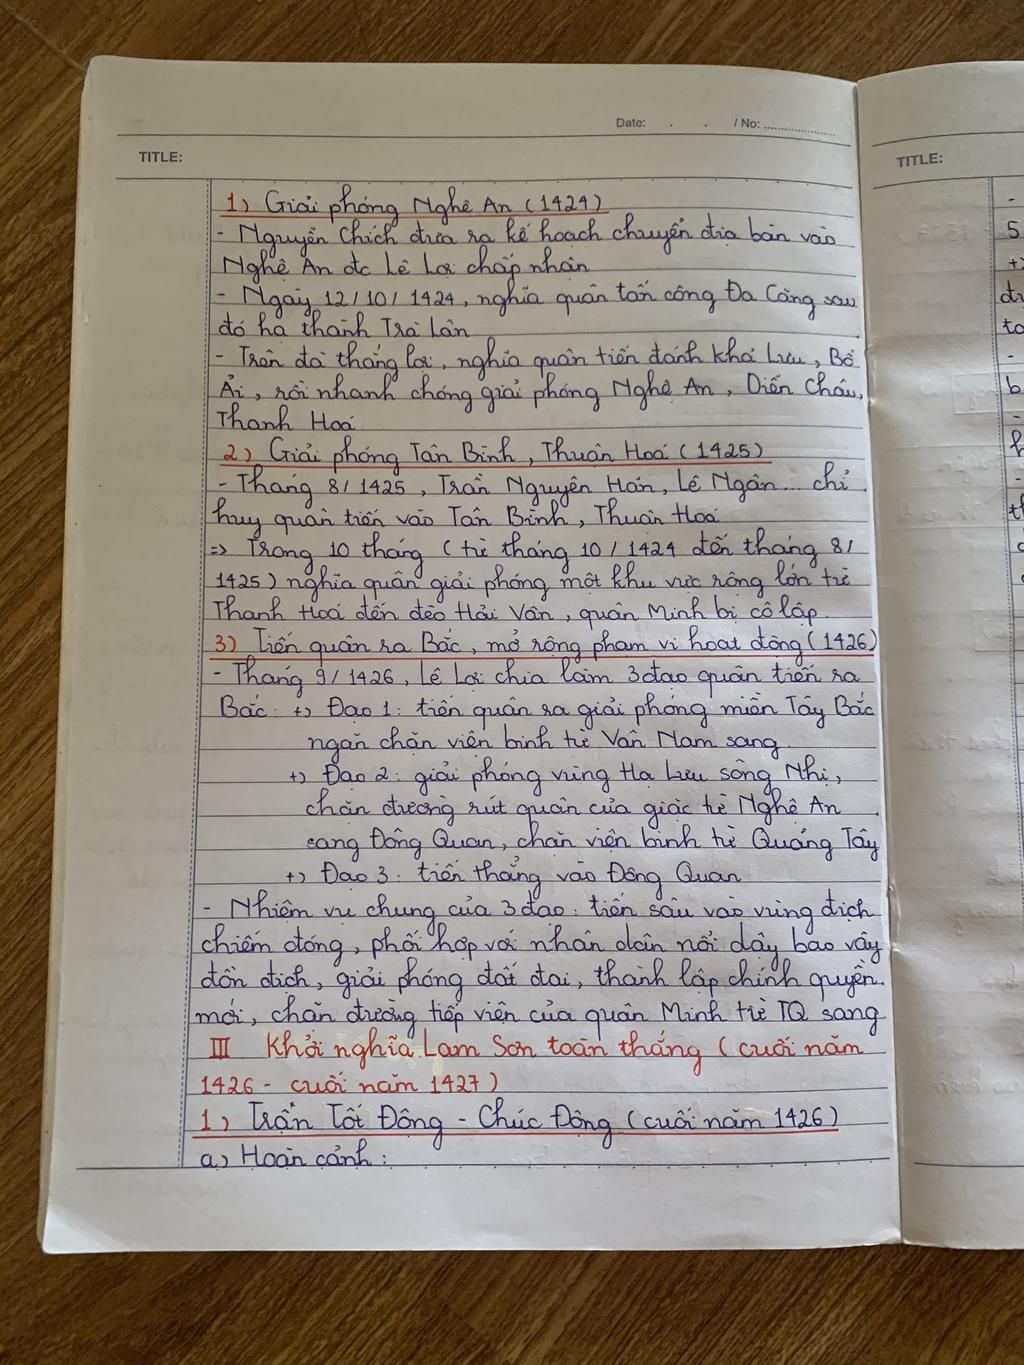 Date: . . / No: ....................
TITLE:
1) Giải phóng Nghệ An (1424)
- Nguyễn Chích đưa ra kế hoạch chuyển địa bàn vào
Nghệ An đc Lê Lợi chấp nhận
- Ngày 12/10/1424, nghĩa quân tấn công Đa Căng sau
đó hạ thành Trà Lân
- Trên đà thắng lợi, nghĩa quân tiến đánh khả Lưu, Bồ
Ải, rồi nhanh chóng giải phóng Nghệ An, Diễn Châu,
Thanh Hoá
2) Giải phóng Tân Bình, Thuận Hoá (1425)
- Tháng 8/1425, Trần Nguyên Hán, Lê Ngân... chỉ
huy quân tiến vào Tân Bình, Thuận Hoá
=> Trong 10 tháng (từ tháng 10/1424 đến tháng 8/
1425) nghĩa quân giải phóng một khu vực rộng lớn từ
Thanh Hoá đến đèo Hải Vân, quân Minh bị cô lập.
3) Tiến quân ra Bắc, mở rộng phạm vi hoạt động (1426)
- Tháng 9/1426, Lê Lợi chia làm 3 đạo quân tiến ra
Bắc: +) Đạo 1: tiến quân ra giải phóng miền Tây Bắc
ngăn chặn viện binh từ Vân Nam sang.
+) Đạo 2: giải phóng vùng Hạ Lưu sông Nhị,
chặn đường rút quân của giặc từ Nghệ An
sang Đông Quan, chặn viện binh từ Quảng Tây
+) Đạo 3: tiến thẳng vào Đông Quan
- Nhiệm vụ chung của 3 đạo: tiến sâu vào vùng địch
chiếm đóng, phối hợp với nhân dân nổi dậy bao vây
đồn địch, giải phóng đất đai, thành lập chính quyền
mới, chặn đường tiếp viện của quân Minh từ TQ sang
III Khởi nghĩa Lam Sơn toàn thắng (cuối năm
1426 - cuối năm 1427)
1) Trận Tốt Động - Chúc Động (cuối năm 1426)
a) Hoàn cảnh:
TITLE:
-
5
+)
-
b
-
-